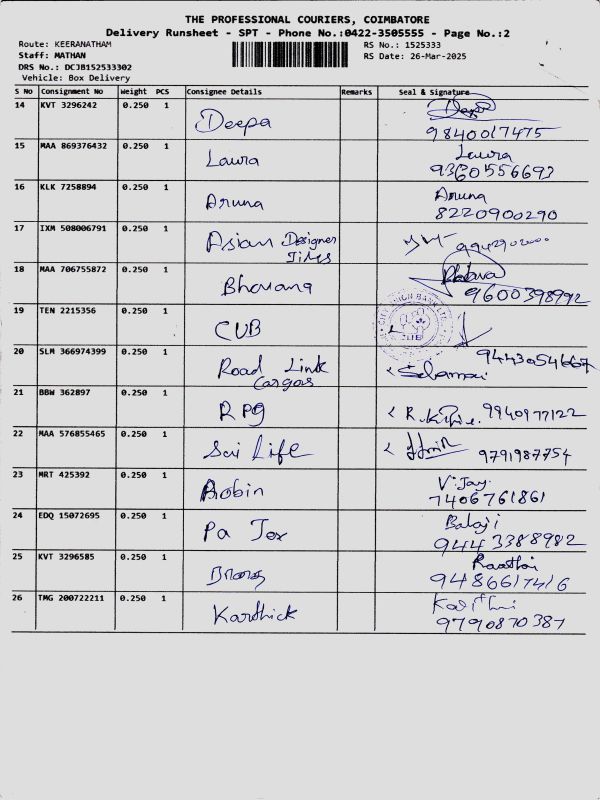 THE PROFESSIONAL COURIERS, COIMBATORE
Delivery Runsheet - SPT - Phone No.:0422-3505555 - Page No.:2
Route: KEERANATHAM
RS No.: 1525333
Staff: MATHAN
RS Date: 26-Mar-2025
DRS No.: DCJB152533302
Vehicle: Box Delivery
S No Consignment No Weight PCS Consignee Details Remarks Seal & Signature
14 KVT 3296242 0.250 1 Deepa Deepa
9840017475
15 MAA 869376432 0.250 1 Laura Laura
9360556693
16 KLK 7258894 0.250 1 Aruna Aruna
8220900290
17 IXM 508006791 0.250 1 Asian Designer
Tiles
18 MAA 706755872 0.250 1 Bhavana
9600398992
19 TEN 2215356 0.250 1 CUB
CITY UNION BANK LTD.
20 SLM 366974399 0.250 1 Road Link
Cargos
9443054667
21 BBW 362897 0.250 1 RPG 9940977122
22 MAA 576855465 0.250 1 Sai Life 9791987754
23 MRT 425392 0.250 1 Robin V.Jay
7406761861
24 EDQ 15072695 0.250 1 Pa Tex Balaji
9443388982
25 KVT 3296585 0.250 1
9486617416
26 TMG 200722211 0.250 1 Karthick
9790870387